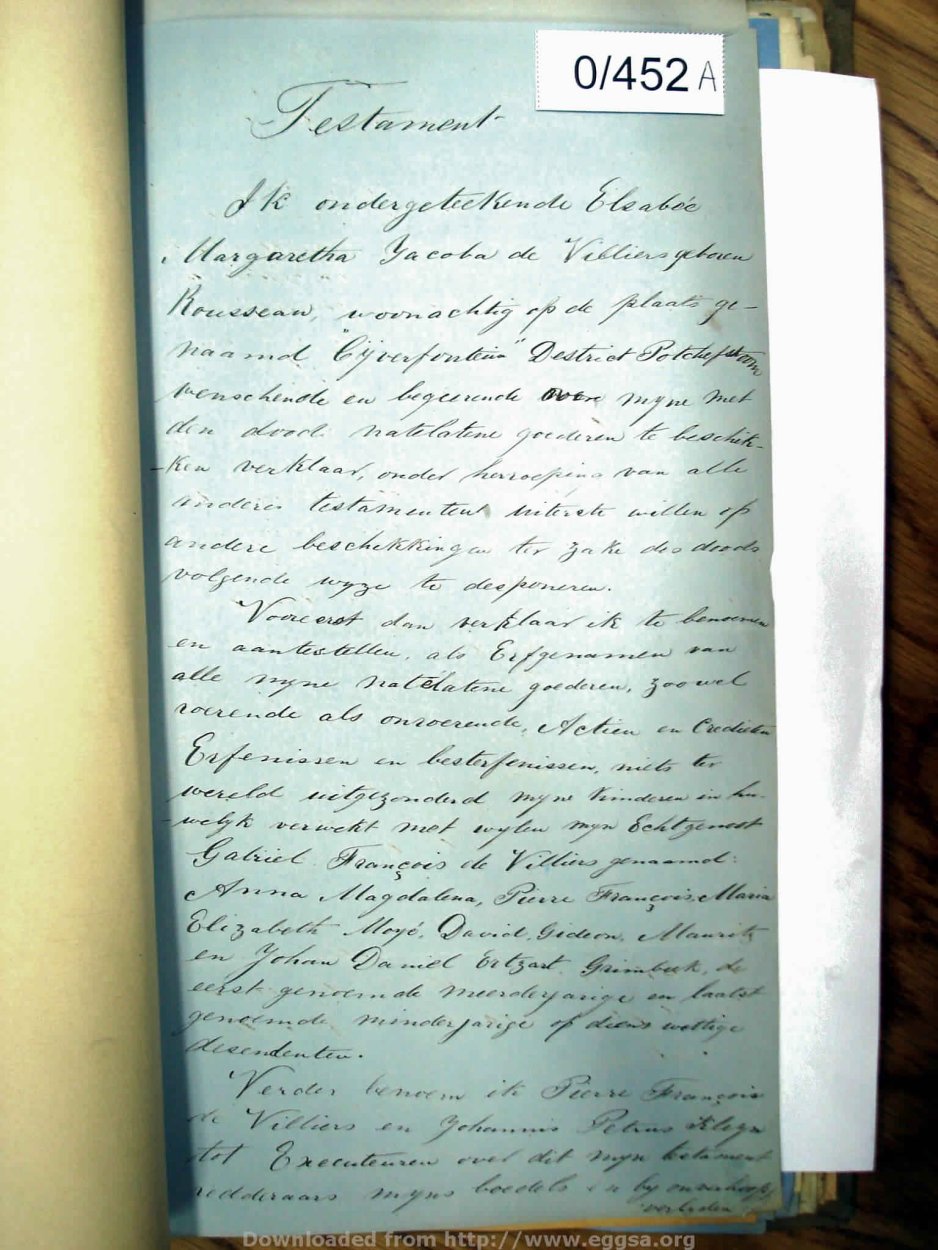 0/452 A
Testament
Ik ondergeteekende Elsabée
Margaretha Jacoba de Villiers geboren
Rousseau, woonachtig op de plaats ge-
naamd "Cyverfontein" District Potchefstroom
wenschende en begeerende over myne met
den dood natelatene goederen te beschik-
-ken verklaar, onder herroeping van alle
andere testamenten uiterste willen of
andere beschikkingen ter zake des doods
volgende wyze te desponeren.
Vooreerst dan verklaar ik te benoemen
en aantestellen, als Erfgenamen van
alle myne natelatene goederen, zoowel
roerende als onroerende, Actien en Crediten
Erfenissen en besterfenissen, niets ter
wereld uitgezonderd myne kinderen in hu-
-welyk verwekt met wylen myn Echtgenoot
Gabriel François de Villiers genaamd:
Anna Magdalena, Pierre François, Maria
Elizabeth Moyé, David, Gideon, Mauritz
en Johan Daniel Grimbeek, de
eerst genoemde meerderjarige en laatst
genoemde minderjarige of diens wettige
desendenten.
Verder benoem ik Pierre François
de Villiers en Johannis Petrus Kleyn
tot Executeuren over dit myn testament
redderaars myns boedels en by onverhoop
overlyden
Downloaded from http://www.eggsa.org